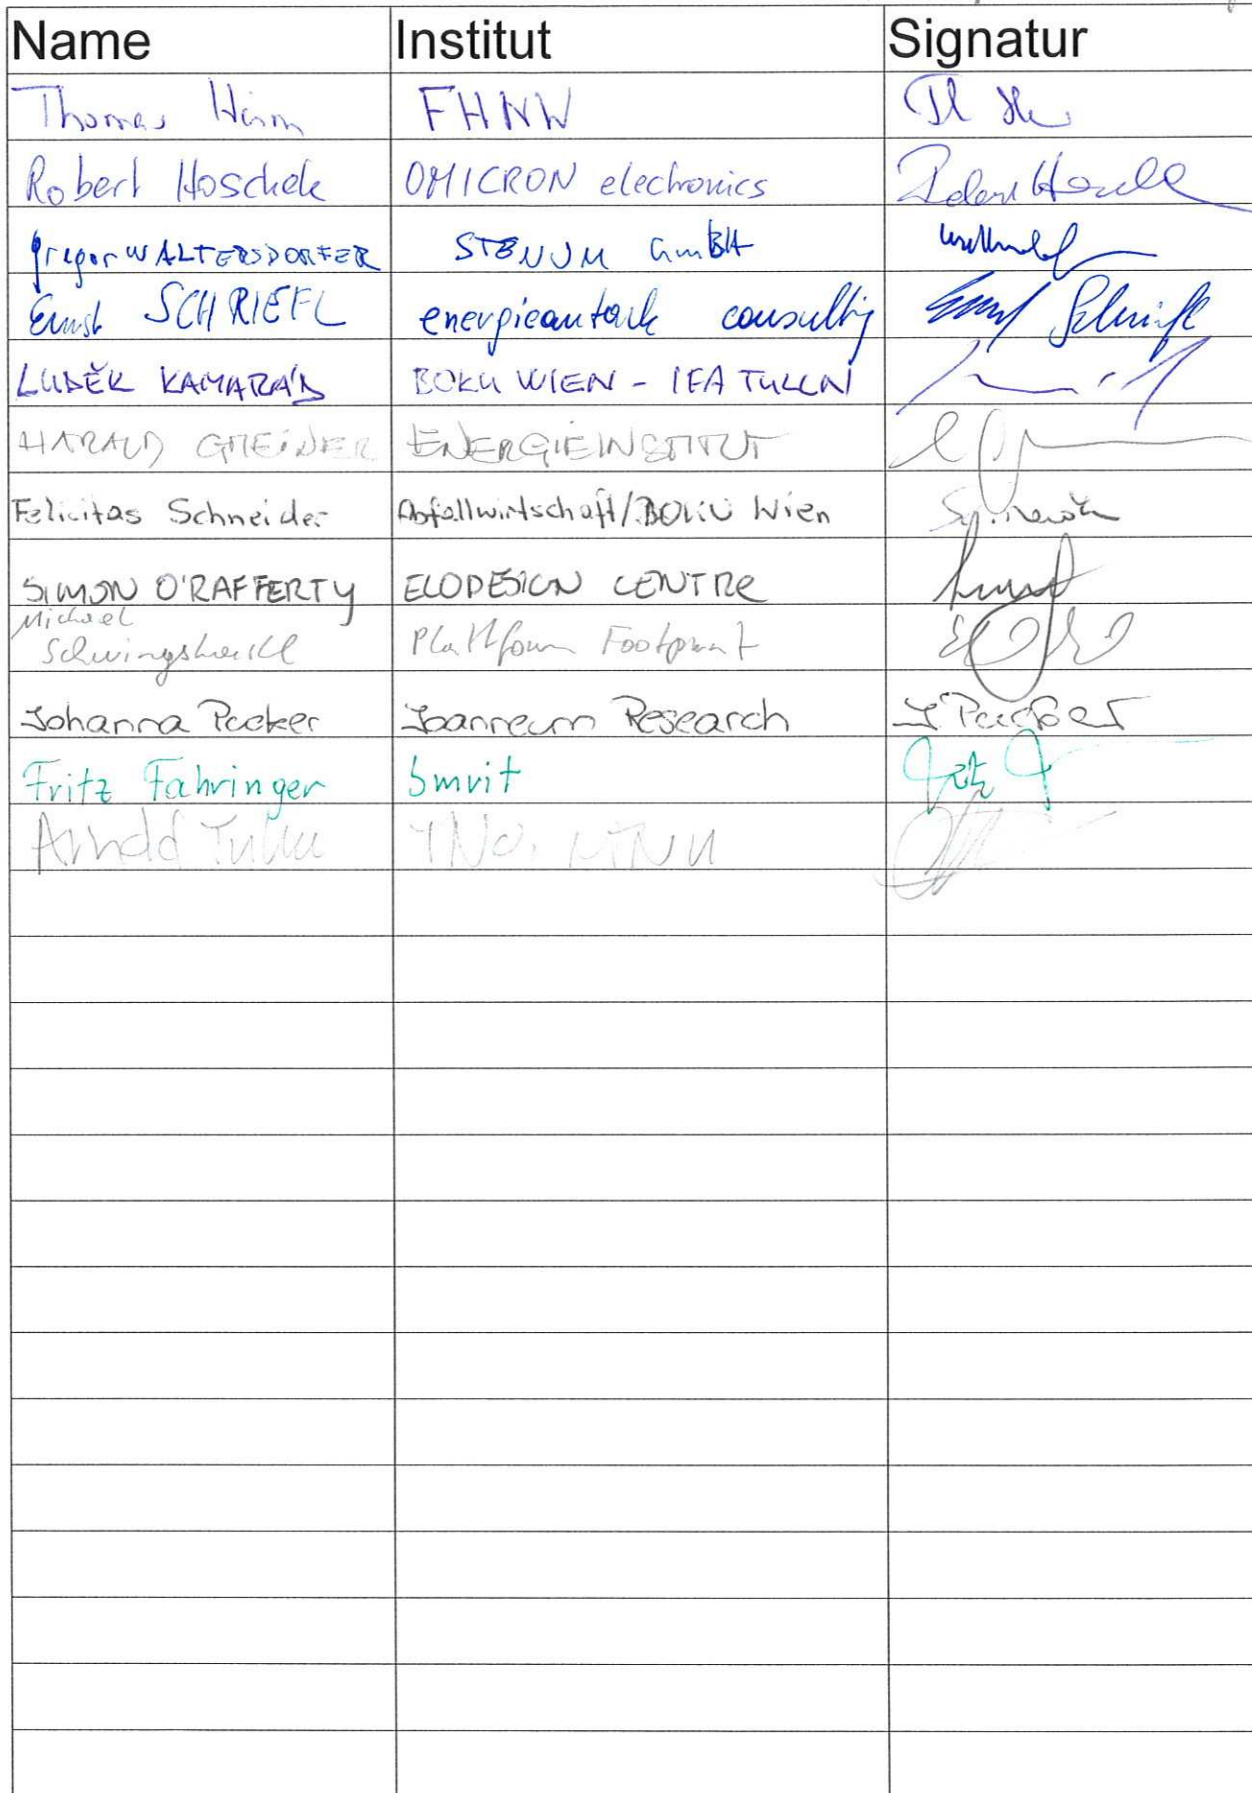 Name Institut Signatur
Thomas FHNW
Robert Hoschek OMICRON electronics
Gregor WALTERSDORFER STENUM GmbH
Ernst SCHRIEFL energieautark consulting Ernst Schriefl
LUDĚK KAMARÁD BOKU WIEN - IFA TULLN
HARALD GMEINER ENERGIEINSTITUT
Felicitas Schneider Abfallwirtschaft/BOKU Wien
SIMON O'RAFFERTY ECODESIGN CENTRE
Michael
Schwingshackl Plattform Footprint
Johanna Pucker Joanneum Research J Pucker
Fritz Fahringer bmvit
Arnold TNO,